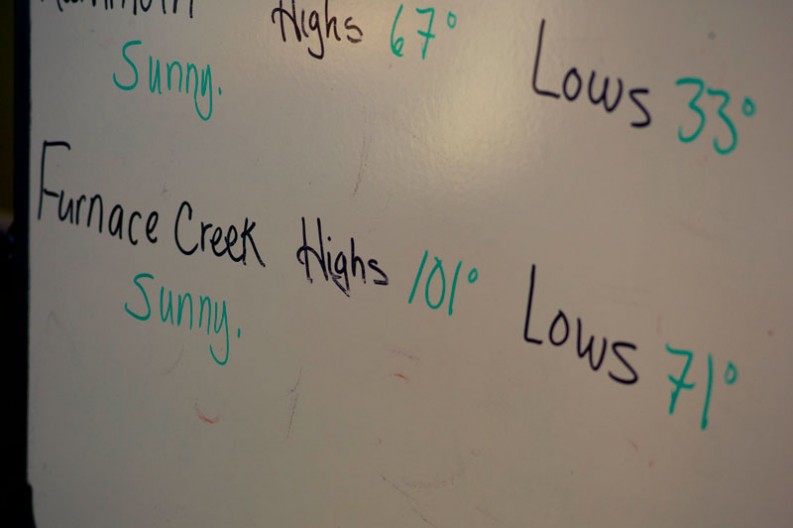 Mammoth Highs 67° Lows 33°
Sunny.
Furnace Creek Highs 101° Lows 71°
Sunny.